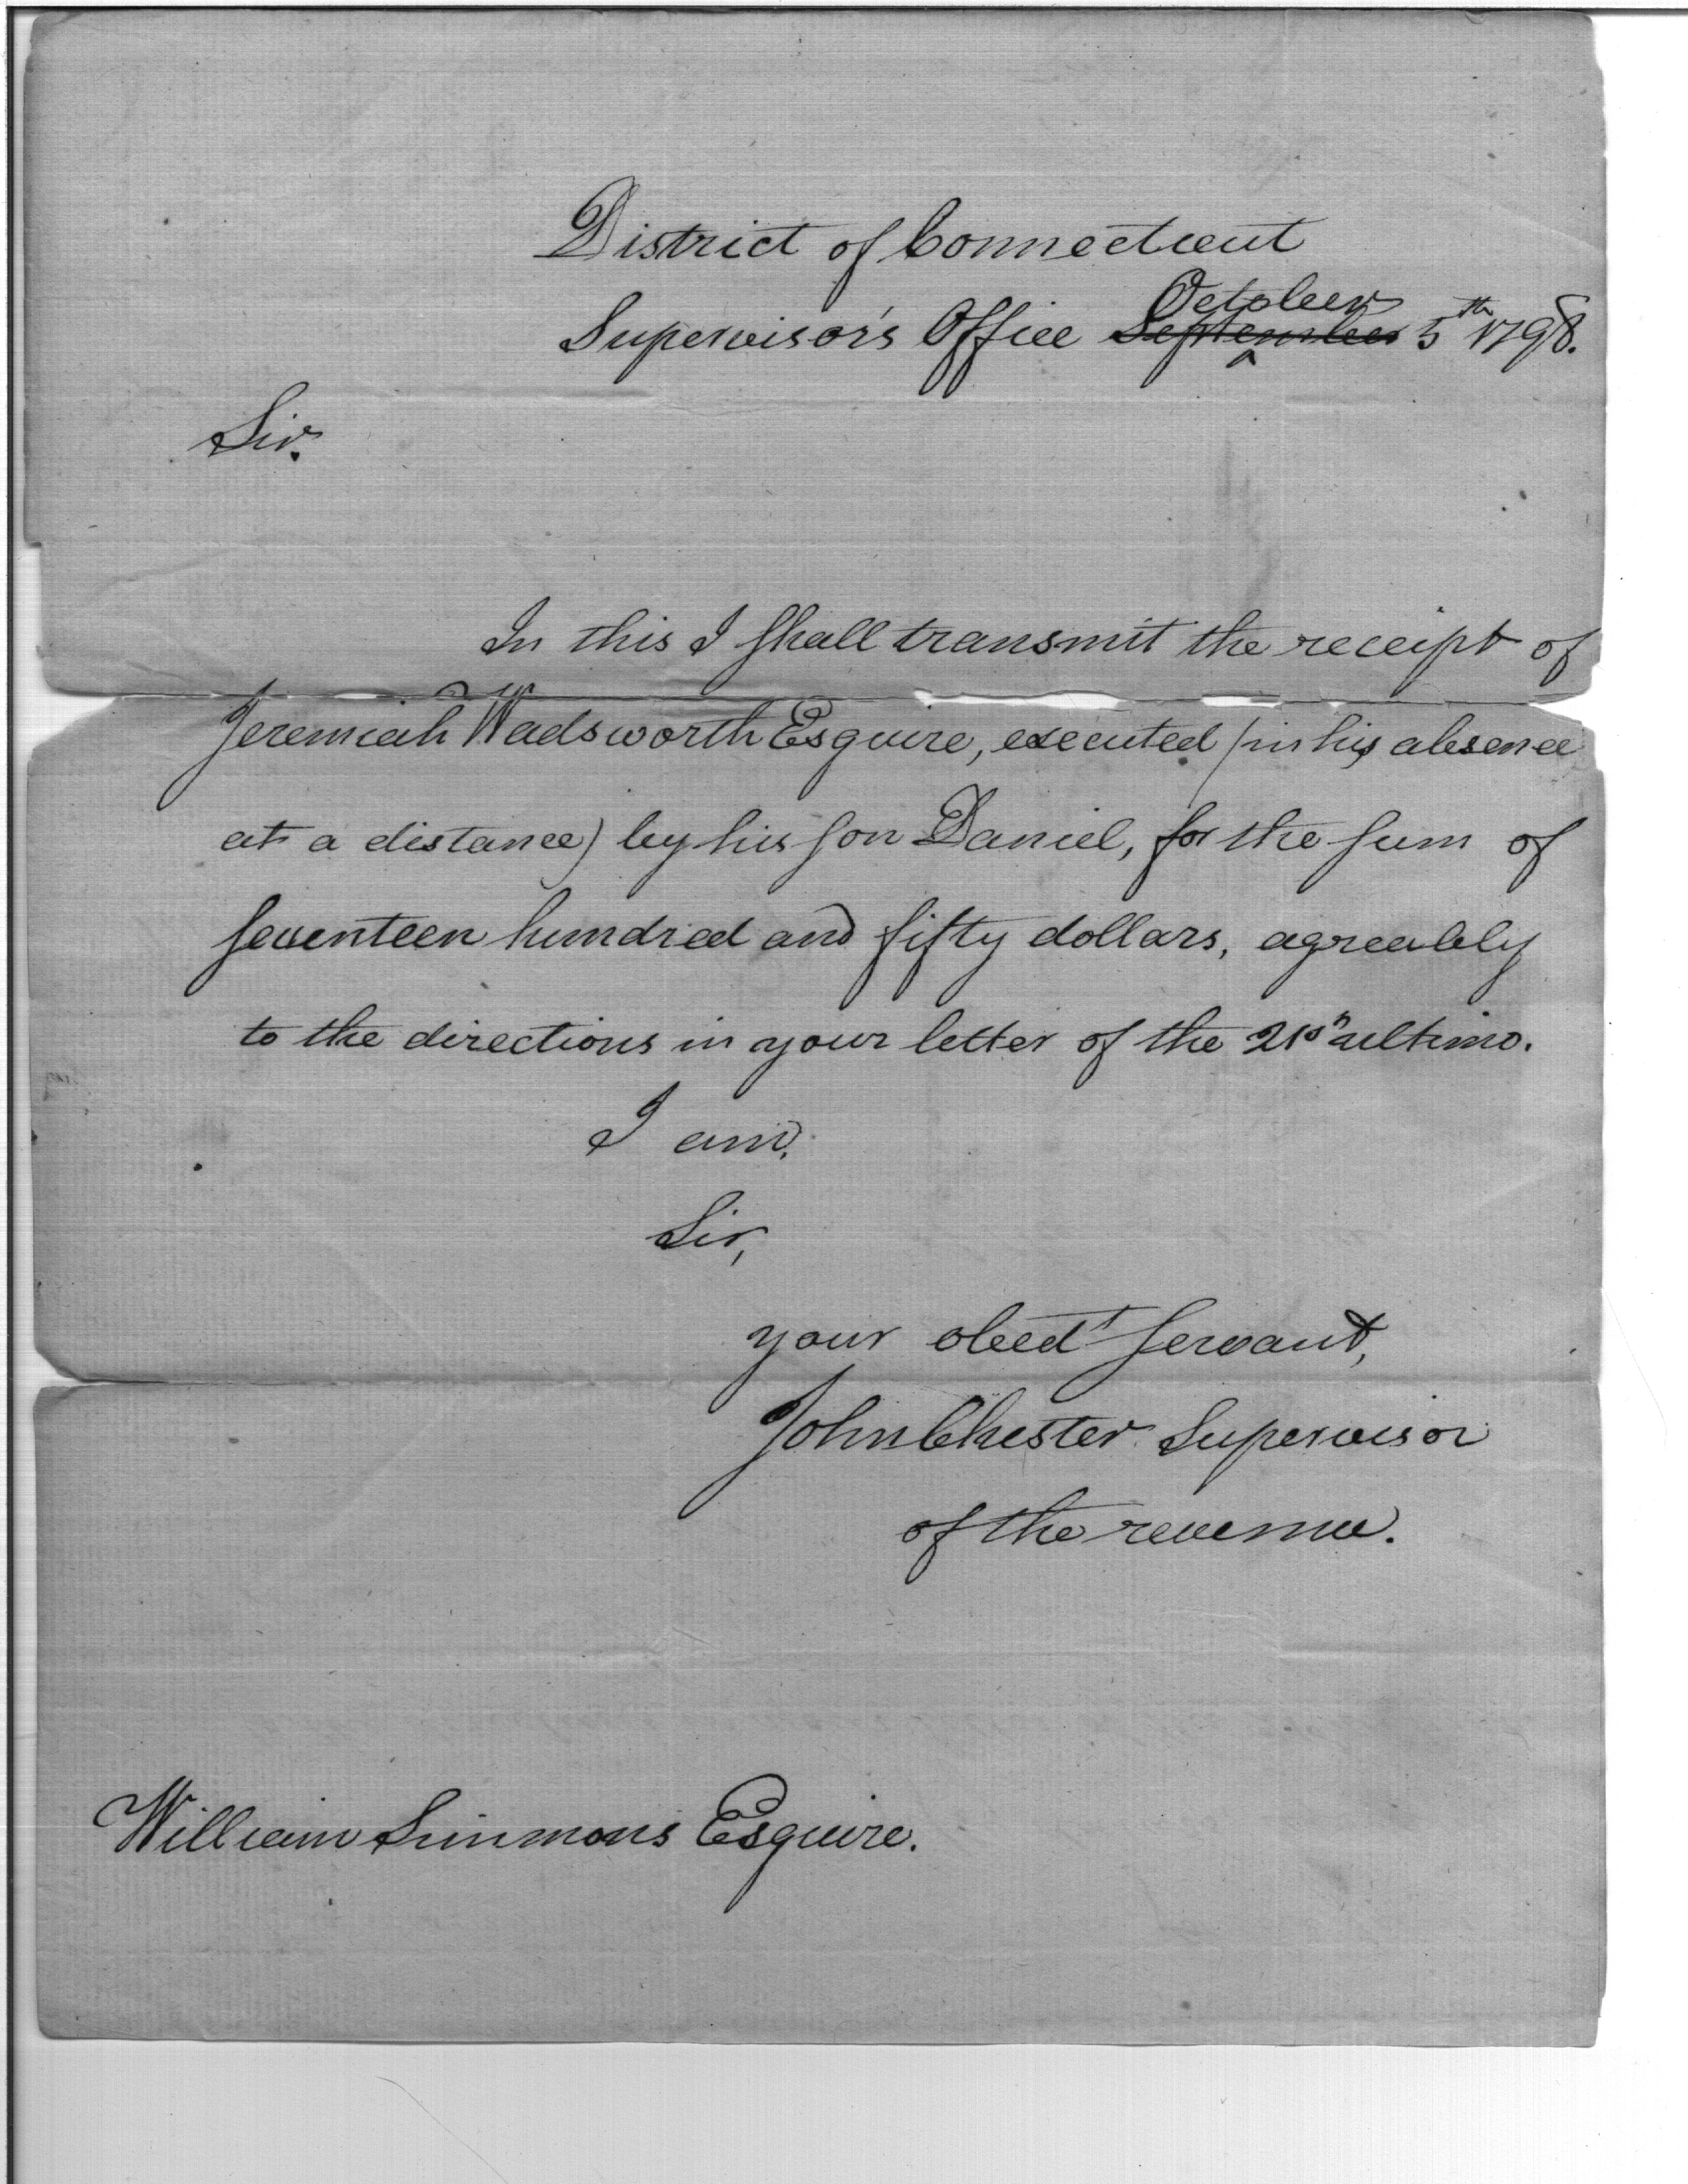 District of Connecticut
October
Supervisor's Office ~~September~~ 5th 1798.
Sir.
In this I shall transmit the receipt of
Jeremiah Wadsworth Esquire, executed (in his absence
at a distance) by his son Daniel, for the sum of
seventeen hundred and fifty dollars, agreably
to the directions in your letter of the ultimo.
I am,
Sir,
your obedt servant,
John Chester Supervisor
of the revenue.
William Simmons Esquire.